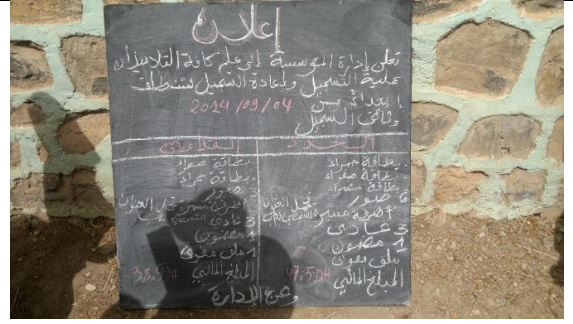 إعلان
تعلن إدارة المؤسسة إلى علم كافة التلاميذ أن
عملية التسجيل وإعادة التسجيل ستنطلق
ابتداء من 2014/09/04
وثائق التسجيل
الجدد القدامى
بطاقة حمراء بطاقة صفراء
بطاقة صفراء بطاقة حمراء
بطاقة خضراء 3 صور
6 صور
3 عادي 3 عادي
1 مضمون 1 مضمون
ملف مقوى 1 ملف مقوى
المبلغ المالي 47,5DH المبلغ المالي 38,5DH
وعن الإدارة